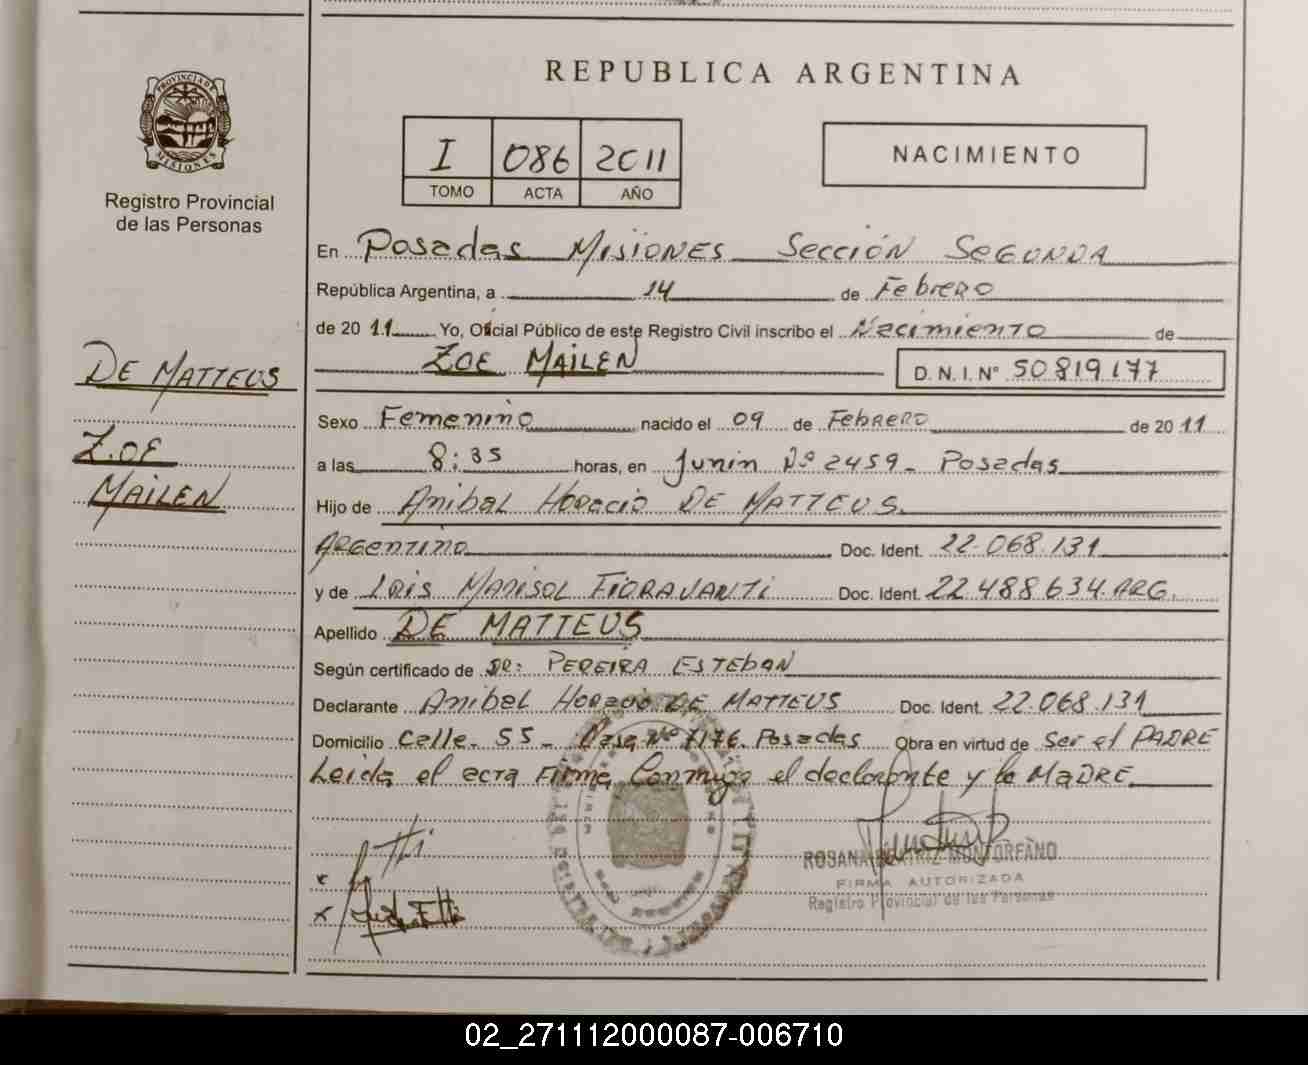 PROVINCIA DE
MISIONES
Registro Provincial
de las Personas
DE MATTEUS
ZOE
MAILEN
REPUBLICA ARGENTINA
I 086 2011
TOMO ACTA AÑO
NACIMIENTO
En Posadas Misiones Sección Segunda
República Argentina, a 14 de Febrero
de 20 11 Yo, Oficial Público de este Registro Civil inscribo el Nacimiento de
ZOE MAILEN D. N. I. N° 50819177
Sexo Femenino nacido el 09 de Febrero de 20 11
a las 8:35 horas, en Junin Nº 2459 - Posadas
Hijo de Anibal Horacio DE MATTEUS
Argentino Doc. Ident. 22.068.131
y de Iris Marisol Fioravanti Doc. Ident. 22.488.634.ARG.
Apellido DE MATTEUS
Según certificado de DR: PEREIRA ESTEBAN
Declarante Anibal Horacio DE MATTEUS Doc. Ident. 22.068.131
Domicilio Calle. 55 - Casa Nº 7176. Posadas Obra en virtud de Ser el PADRE
Leida el acta Firma Conmigo el declarante y la MADRE
ROSANA BEATRIZ MONTORFANO
FIRMA AUTORIZADA
Registro Provincial de las Personas
02_271112000087-006710